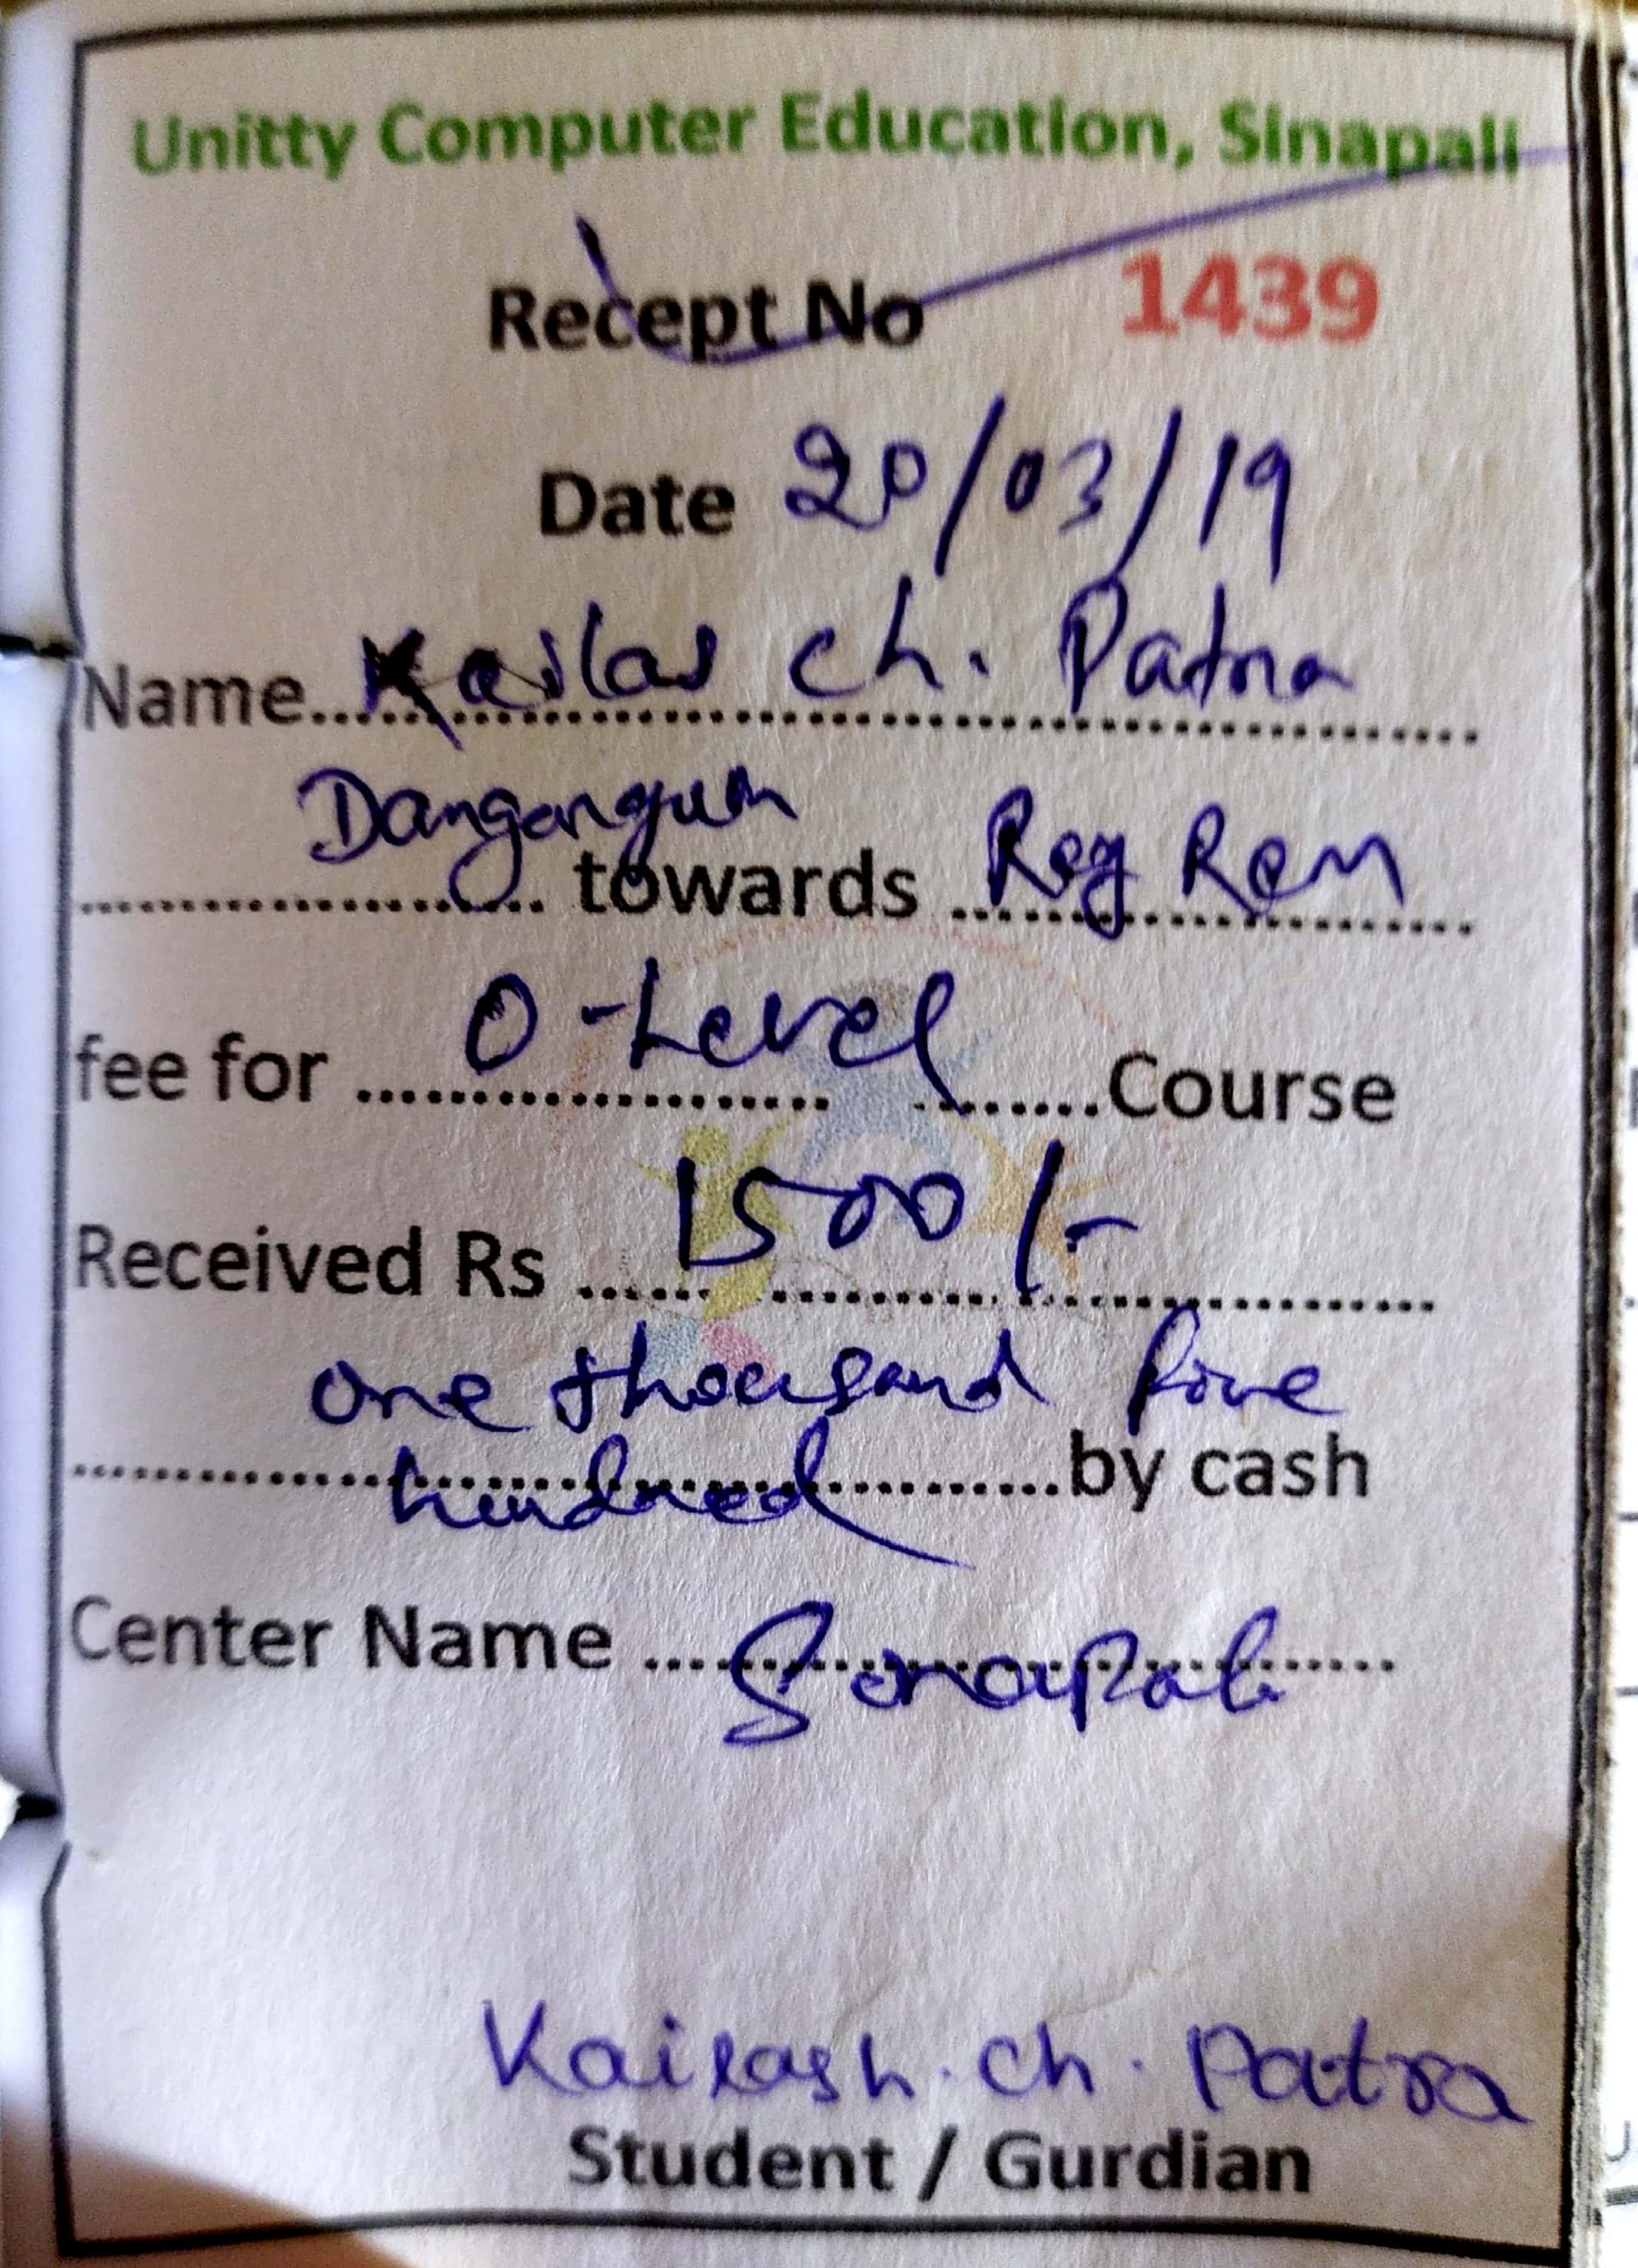 Unitty Computer Education, Sinapali
Recept No 1439
Date 20/03/19
Name Kailas ch. Patra
towards Reg Rem
fee for O-Level Course
Received Rs 1500/-
one thousand five
hundred by cash
Center Name Sinapali
Kailash. ch. Patra
Student / Gurdian